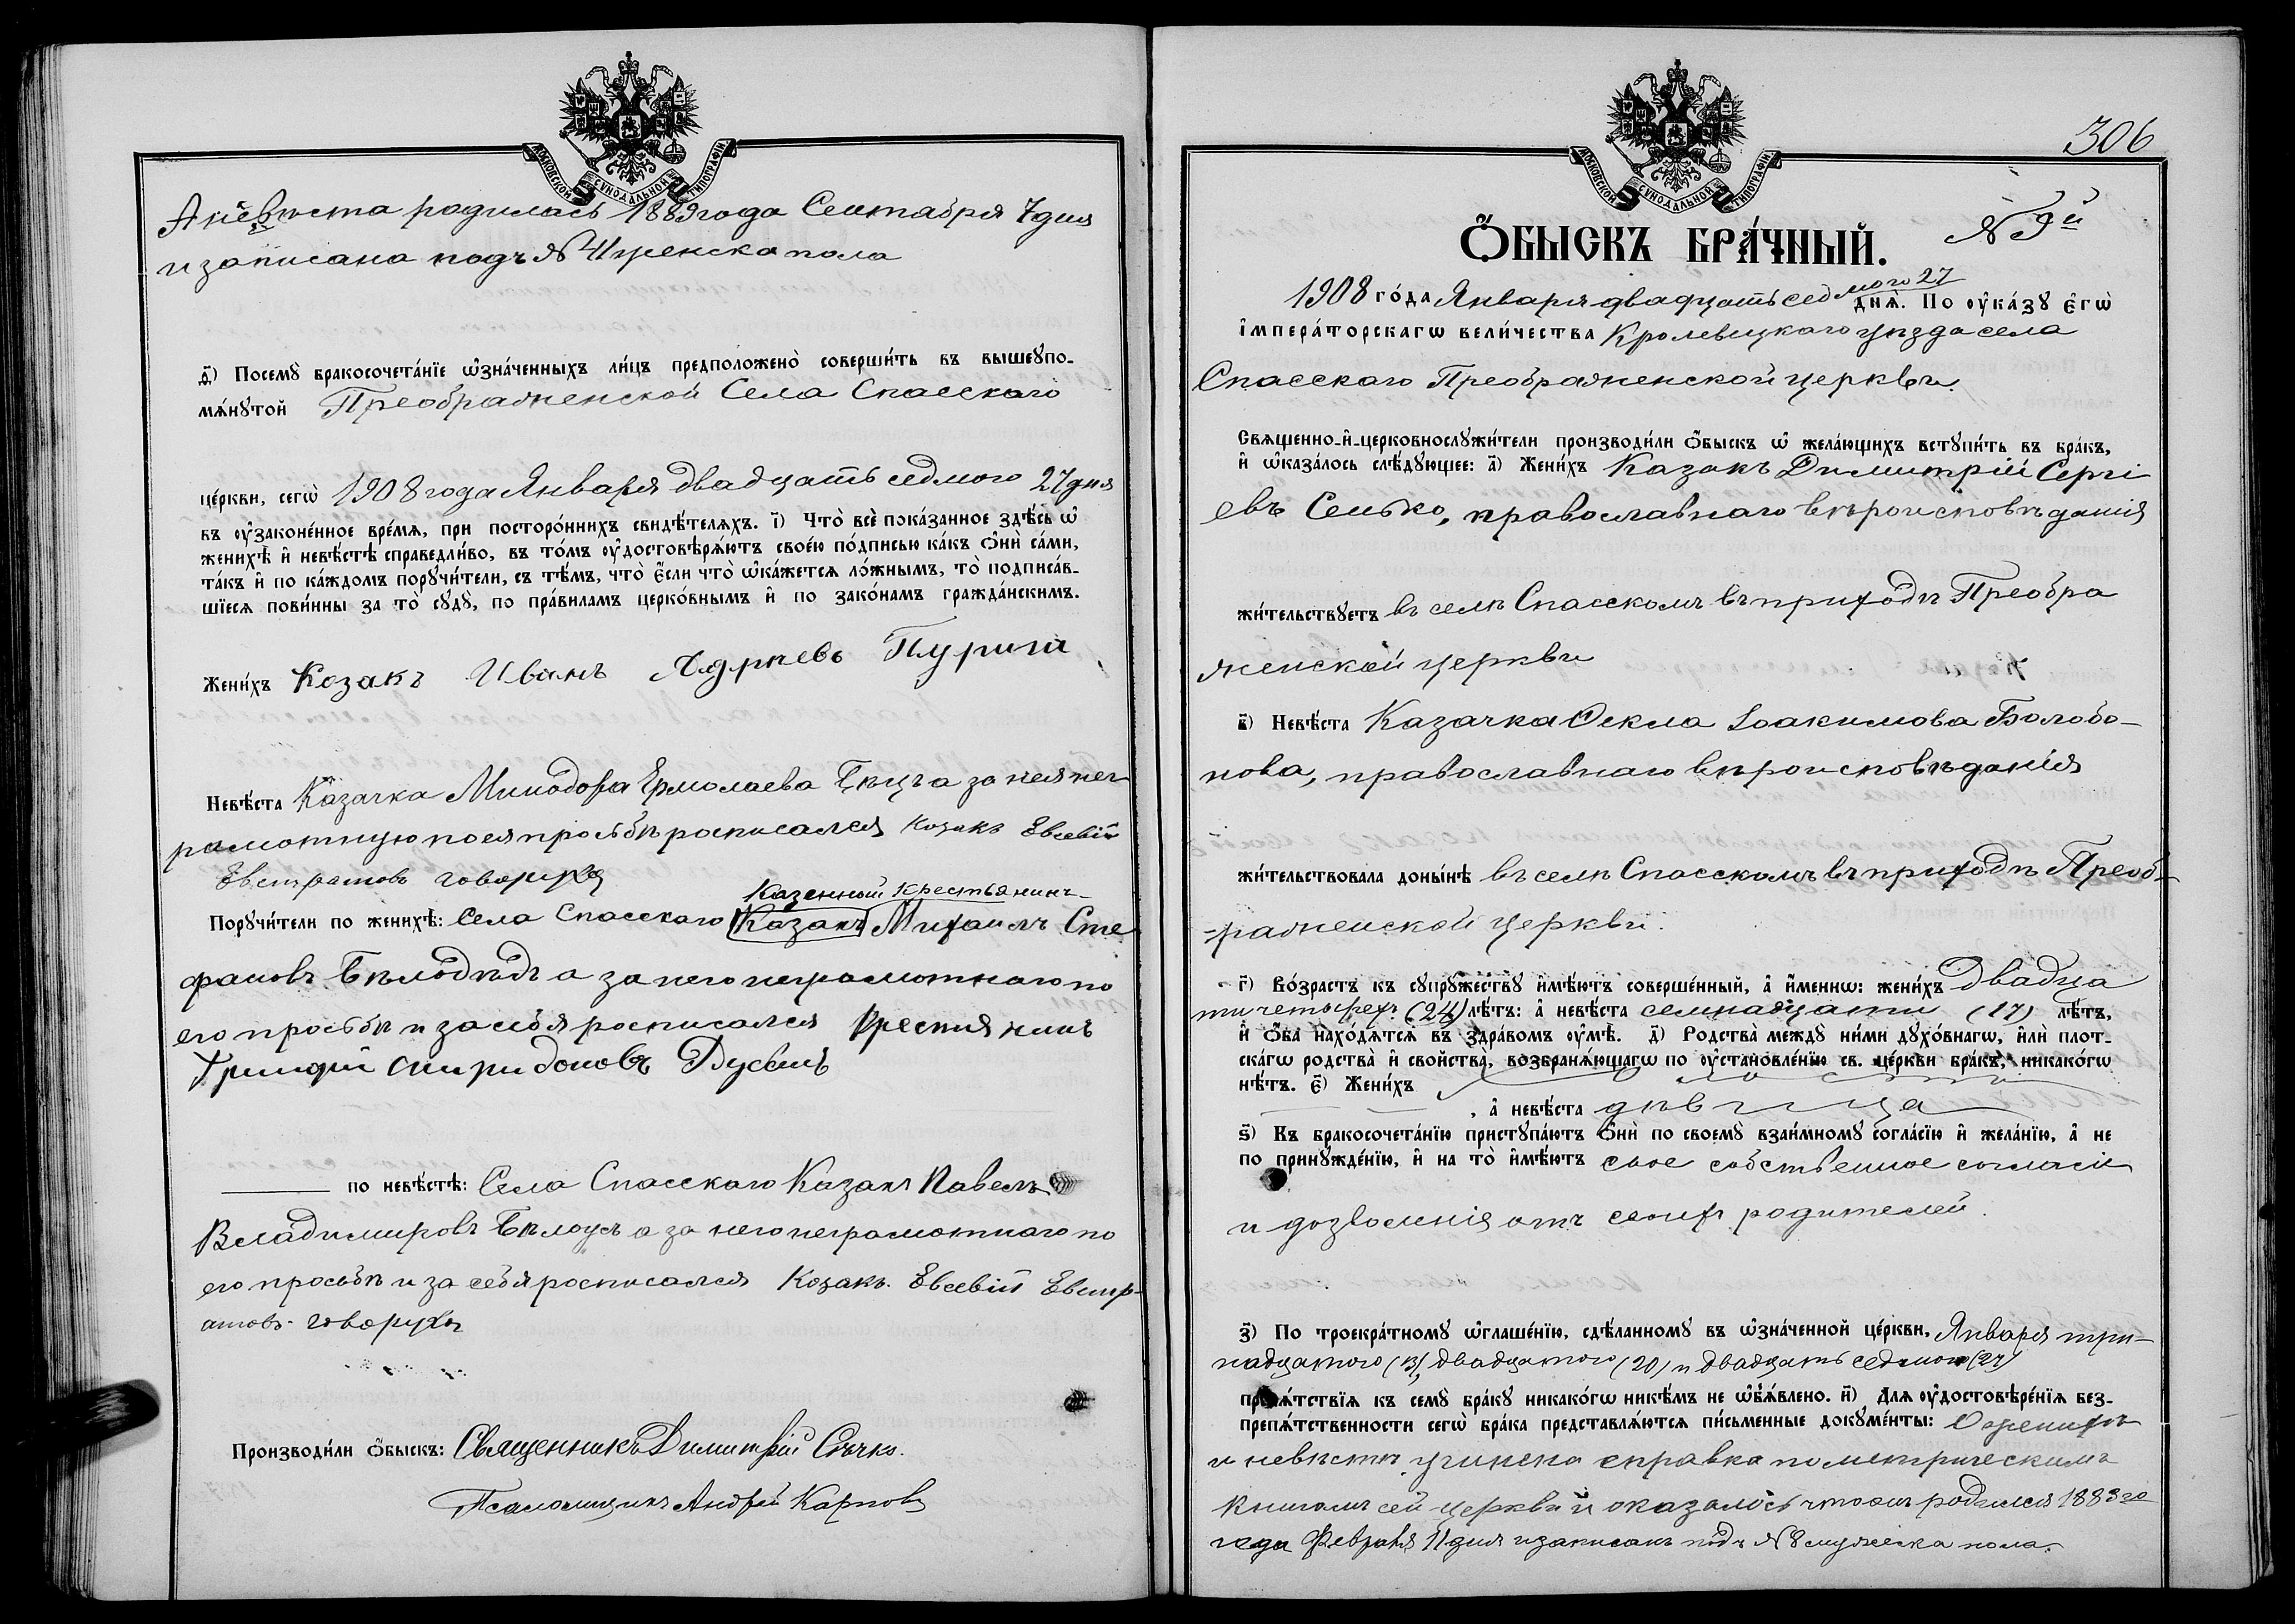 МОСКОВСКОЙ СѴНОДАЛЬНОЙ ТИПОГРАФІИ
А невѣста родилась 1889 года Сентября 7 дня
и записана подъ № 4 женска пола
ѳ҃) Посемꙋ̀ бракосочета́нїе ѡ҆зна́ченныхъ ли́цъ предположено̀ соверши́ть въ вышеꙋпо-
мѧ́нꙋтой Преображенской Села Спасскаго
це́ркви, сегѡ̀ 1908 года Января двадцать седмого 27 дня
въ ᲂу҆законе́нное вре́мѧ, при посторо́ннихъ свидѣ́телѧхъ. і҃) Что̀ всѐ пока́занное здѣ́сь ѡ҆
женихѣ̀ и҆ невѣ́стѣ справедли́во, въ то́мъ ᲂу҆достовѣрѧ́ютъ свое́ю по́дписью ка́къ ѻ҆нѝ са́ми,
та́къ и҆ по ка́ждомъ порꙋчи́тели, съ тѣ́мъ, что̀ є҆́сли что̀ ѡ҆ка́жетсѧ ло́жнымъ, то̀ подписа́в-
шїесѧ пови́нны за то̀ сꙋдꙋ̀, по пра́виламъ церко́внымъ и҆ по зако́намъ гражда́нскимъ.
Жени́хъ Козакъ Иванъ Андрѣевъ
Невѣ́ста Казачка Минодора Ермолаева а за нея нег
рамотную по ея просьбѣ росписался Козакъ Евсевій
Евстратовъ Говоруха
Казенный Крестьянинъ
Порꙋчи́тели по женихѣ̀: Села Спасскаго Казакъ Михаилъ Сте
фановъ Бѣлодѣдъ а за него неграмотнаго по
его просьбѣ и за себя росписался Крестиянинъ
Григорій Спиридоновъ
по невѣ́стѣ: Села Спасскаго Казакъ Павелъ
Владимировъ Бѣлоусъ а за него неграмотнаго по
его просьбѣ и за себя росписался Козакъ Евсевій Евстр-
атовъ Говоруха
Производи́ли ѻ҆́быскъ: Священникъ Димитрій Сѣчко.
Псаломщикъ Андрей Карпов
306
МОСКОВСКОЙ СѴНОДАЛЬНОЙ ТИПОГРАФІИ
№ 9й
Ѻ҆́БЫСКЪ БРА́ЧНЫЙ.
1908 го́да Января двадцать седмого 27 днѧ̀. По ᲂу҆ка́зꙋ є҆гѡ̀
і҆мпера́торскагѡ вели́чества Кролевецкаго уѣзда села
Спасскаго Преображенской церкви.
Свѧщенно-и҆-церковнослꙋжи́тели производи́ли ѻ҆́быскъ ѡ҆ жела́ющихъ вступи́ть въ бра́къ,
и҆ ѡ҆каза́лось слѣ́дꙋющее: а҃) Жени́хъ Казакъ Димитрій Сергі
евъ Сенько, православнаго вѣроисповѣданія
жи́тельствꙋетъ въ селѣ Спасскомъ въ приходѣ Преобра
женской церкви
в҃) Невѣ́ста Казачка Ѳекла Іоакимова Болобо-
нова, православнаго вѣроисповѣданія
жи́тельствовала доны́нѣ въ селѣ Спасскомъ въ приходѣ Преоб-
-раженской церкви.
г҃) Во́зрастъ къ сꙋпрꙋ́жествꙋ и҆мѣ́ютъ соверше́нный, а҆ и҆́меннѡ: жени́хъ Двадца
ти четырехъ (24) лѣ́тъ: а҆ невѣ́ста семнадцати (17) лѣ́тъ,
и҆ ѻ҆́ба нахо́дѧтсѧ въ здра́вомъ ᲂу҆мѣ̀. д҃) Родства̀ междꙋ ни́ми дꙋхо́внагѡ, и҆лѝ плот-
ска́гѡ родства̀ и҆ сво́йства, возбранѧ́ющагѡ по ᲂу҆становле́нїю св. це́ркви бра́къ, никако́гѡ
нѣ́тъ. є҃) Жени́хъ холостъ
, а҆ невѣ́ста дѣвица
ѕ҃) Къ бракосочета́нїю пристꙋпа́ютъ ѻ҆нѝ по своемꙋ̀ взаи́мномꙋ согла́сїю и҆ жела́нїю, а҆ не
по принꙋжде́нїю, и҆ на то̀ и҆мѣ́ютъ свое собственное согласіе
и дозволенія отъ своихъ родителей.
з҃) По троекра́тномꙋ ѡ҆глаше́нїю, сдѣ́ланномꙋ въ ѡ҆зна́ченной це́ркви, Января три-
надцатого (13), двадцатого (20) и двадцать седмого (27)
препѧ́тствїѧ къ семꙋ̀ бра́кꙋ никако́гѡ никѣ́мъ не ѡ҆б̾ѧ́влено. и҃) Длѧ ᲂу҆достовѣре́нїѧ без-
препѧ́тственности сегѡ̀ бра́ка представлѧ́ютсѧ пи́сьменные докꙋме́нты: О женихѣ
и невѣстѣ учинена справка по метрическимъ
книгамъ сей церкви и оказалось что онъ родился 1883 го
года Февраля 11 дня и записанъ подъ № 8 мужеска пола.